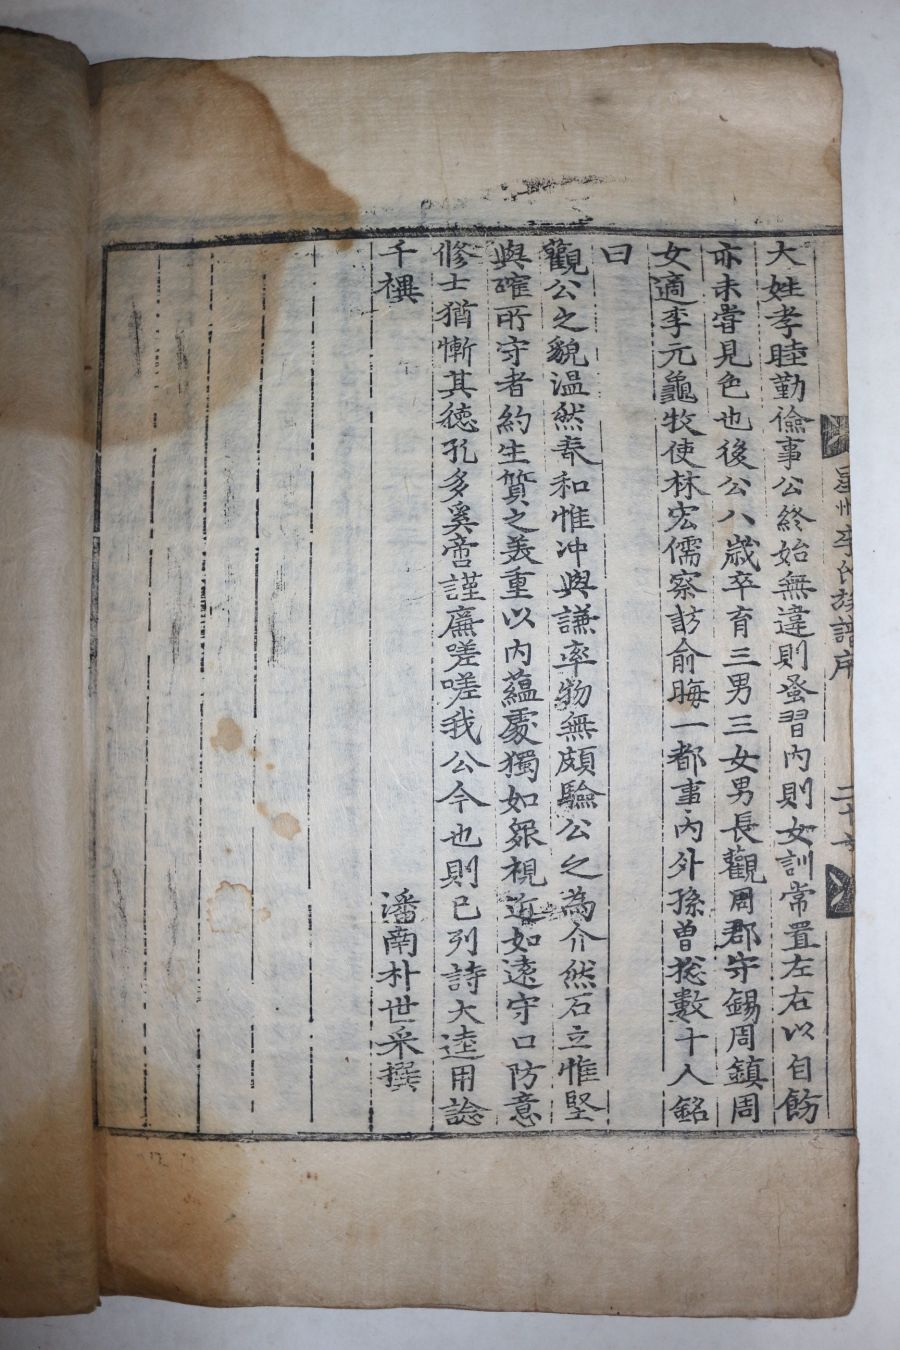 星州李氏族譜序
二十七
大姓孝睦勤儉事公終始無違則蚤習內則女訓常置左右以自飭
亦未嘗見色也後公八歲卒育三男三女男長觀周郡守錫周鎮周
女適李元龜牧使林宏儒察訪俞晦一都事內外孫曾揔數十人銘
曰
觀公之貌溫然春和惟冲與謙率物無頗驗公之為介然石立惟堅
與確所守者約生質之美重以內蘊處獨如衆視近如遠守口防意
修士猶慚其德孔多奚啻謹廉嗟嗟我公今也則已列詩大逵用諗
千禩
潘南朴世采撰